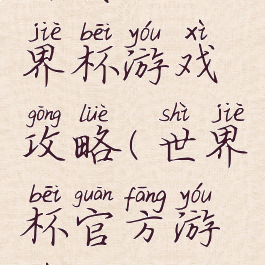 jiè bēi yóu xì
界杯游戏
gōng lüè shì jiè
攻略(世界
bēi guān fāng yóu
杯官方游